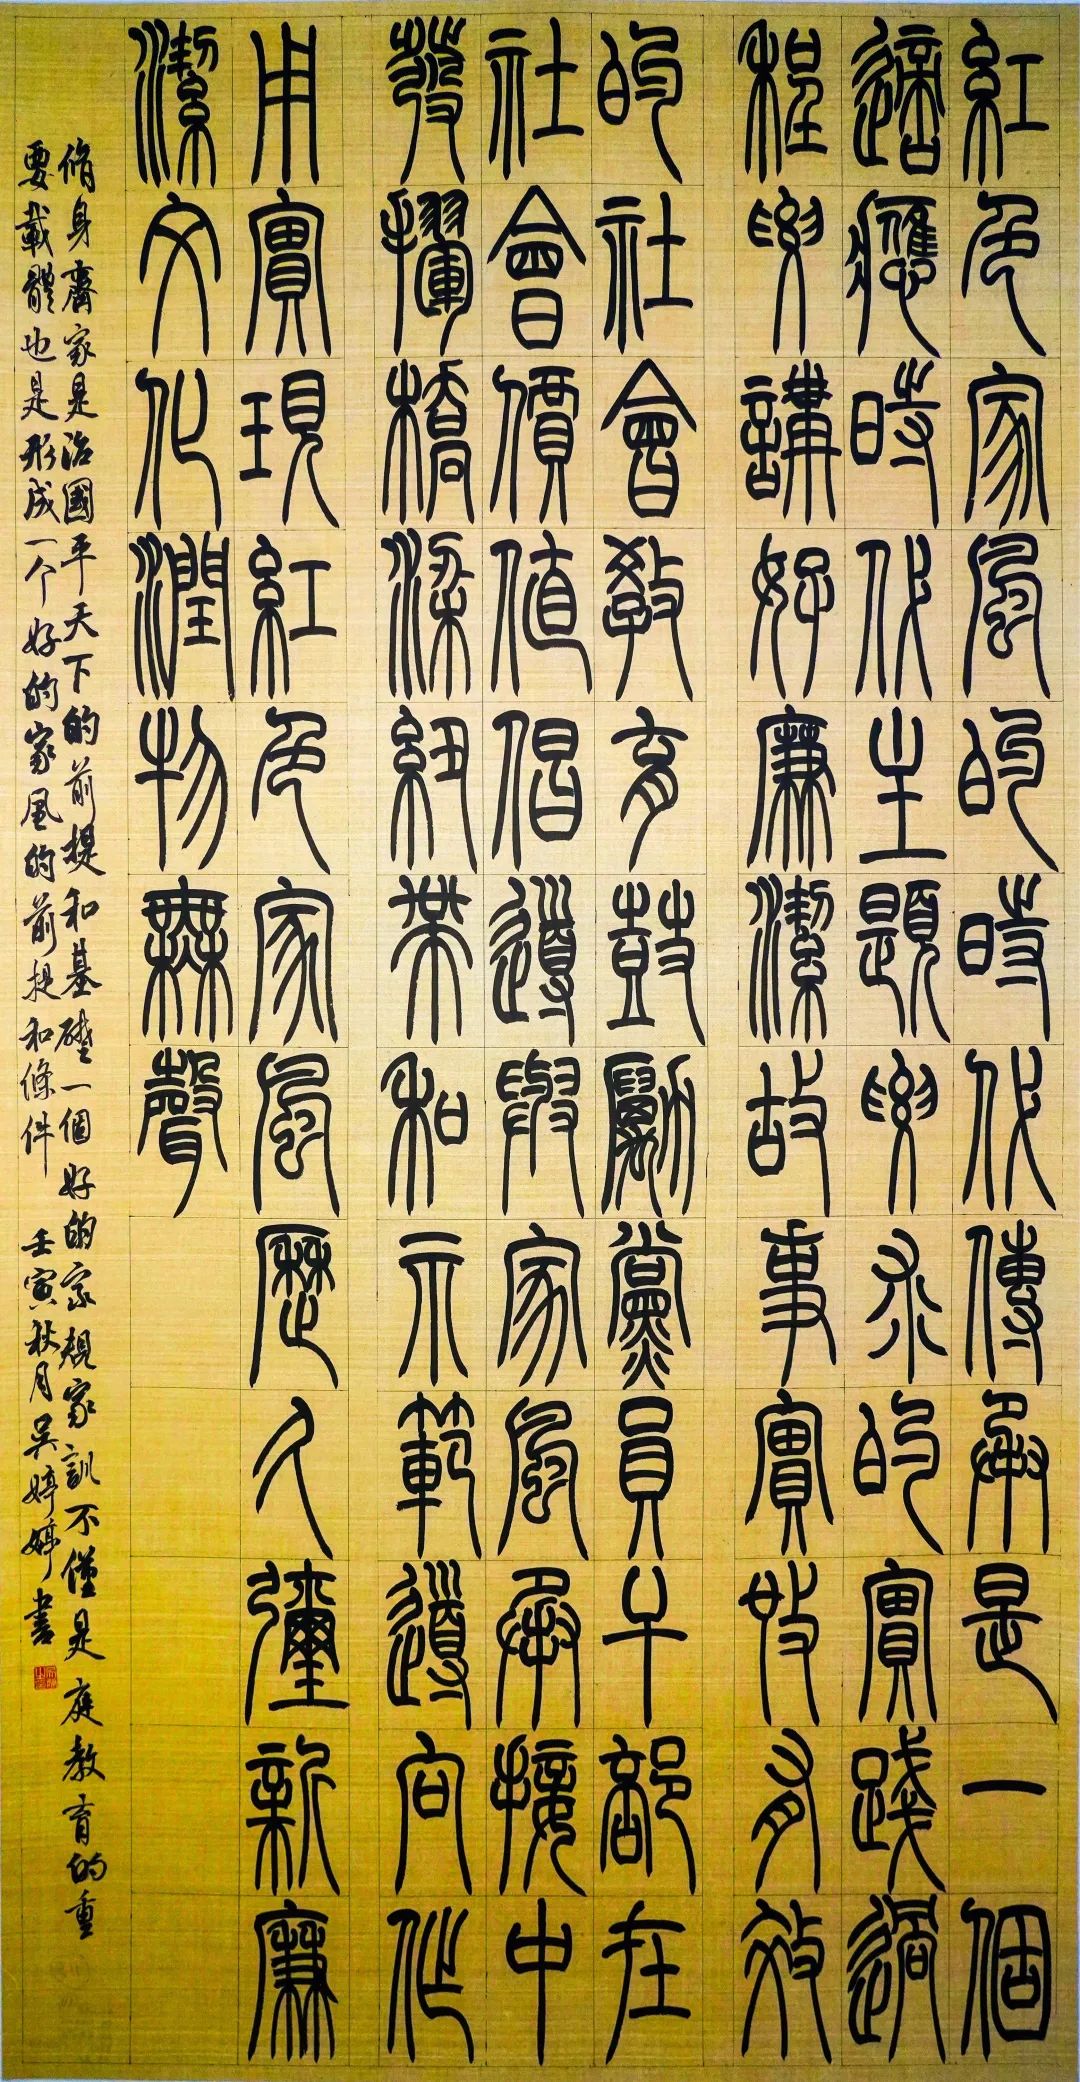 紅色家風的時代傳承是一個
適應時代主題與的實踐過
程與講好廉潔故事實施有效
的社會教育鼓勵黨員干部在
社會價值倡導與家風承接中
發揮橋梁紐帶和示範導向作
用實現紅色家風歷久彌新廉
潔文化潤物無聲
脩身齋家是治國平天下的前提和基礎一個好的家規家訓不僅是庭教育的重
要載體也是形成一个好的家風的前提和條件 壬寅秋月吳婷婷書